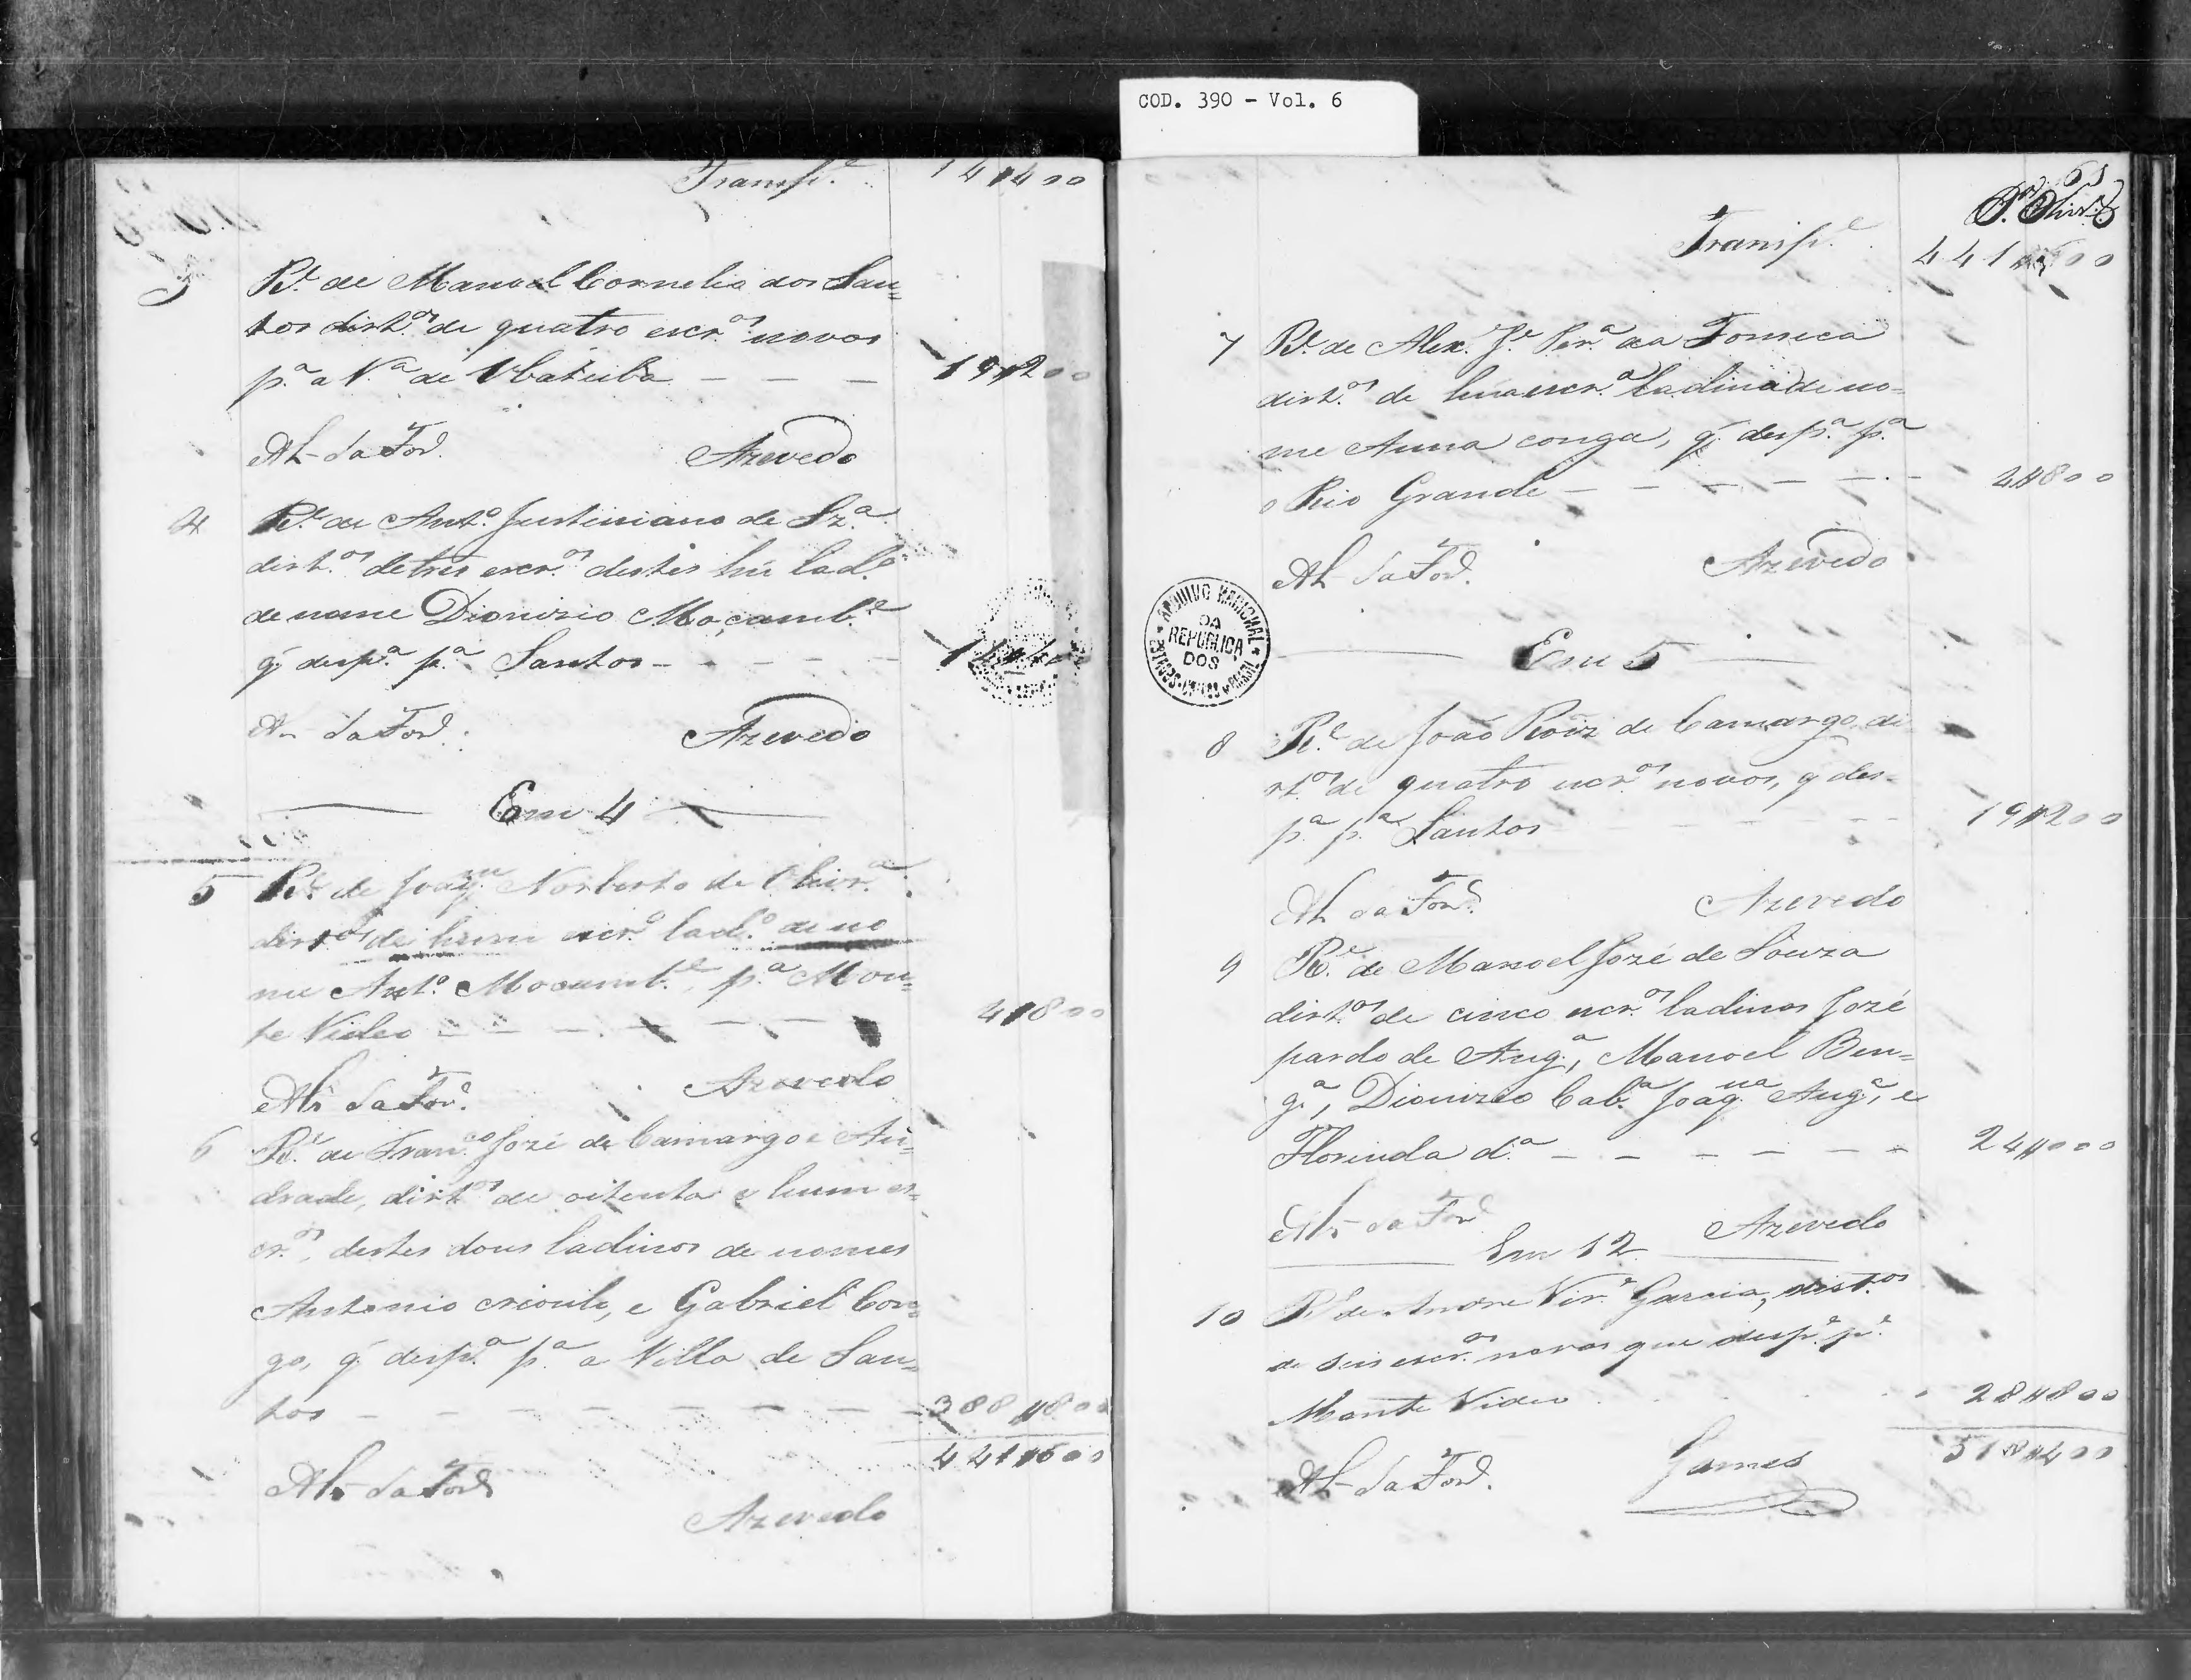 COD. 390 - Vol. 6
Transp.e 14$400
3 R.e de Manoel Cornelio dos San=
tos dirt.os de quatro escr.os novos
p.a a V.a de Ubatuba - - - 19$200
Al- da Fon.ca Azevedo
4 R.e de Ant.o Justiniano de Sz.a
dirt.os de tres escr.os destes hú lad.o
de nome Dionizio Moçamb.e
q' desp.a p.a Santos - - - - - 14$400
Al- da Fon.ca Azevedo
Em 4
5 R.e de Joaq.m Norberto de Olivr.a
dirt.os de hum escr.o lad.o de no
me Ant.o Mocamb.e, p.a Mon=
te Video - - - - - - 4$800
Al- da Fon.ca Azevedo
6 R.e de Fran.co José de Camargo e An=
drade, dirt.os de oitenta e hum es=
cr.os, destes dous ladinos de nomes
Antonio crioulo, e Gabriel Con=
go, q' desp.a p.a a Villa de San=
tos - - - - - - - - 388$800
441$600
Al- da Fon.ca
Azevedo
65
Transp.e 441$600
7 R.e de Alex. J.e Fer.a da Fonseca
dirt.os de húa escr.a ladina de no=
me Anna conga, q' desp.a p.a
o Rio Grande - - - - - - 4$800
Al- da Fon.ca Azevedo
ARQUIVO NACIONAL
DA
REPUBLICA
DOS
ESTADOS-UNIDOS BRASIL
Em 5
8 R.e de João Roiz de Camargo di
rt.os de quatro escr.os novos, q' des=
p.a p.a Santos - - - - - 19$200
Al- da Fon.ca Azevedo
9 R.e de Manoel José de Souza
dirt.os de cinco escr.os ladinos José
pardo de Ang.a, Manoel Ben=
g.a, Dionizio Cab.a Joaq.na Ang.a, e
Florinda d.a - - - - - - 24$000
Al- da Fon.ca Azevedo
Em 12
10 R.e de Andre Vir.e Garcia, dirt.os
de seis escr.os novos que desp.a p.a
Monte Video 28$800
518$400
Al- da Fon.ca Gomes